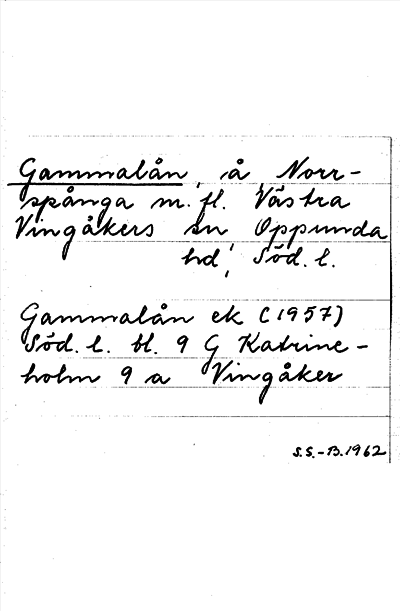 Gammalån, å, Norr-
spånga m. fl. Västra
Vingåkers sn, Oppunda
hd, Söd. l.
Gammalån ek (1957)
Söd. l. bl. 9 G Katrine-
holm 9 a Vingåker
S.S.-B.1962